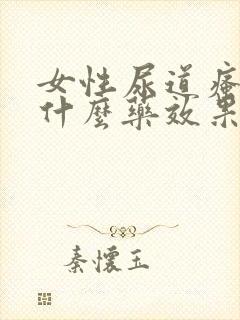 女性尿道
什麼藥效果
秦懷玉